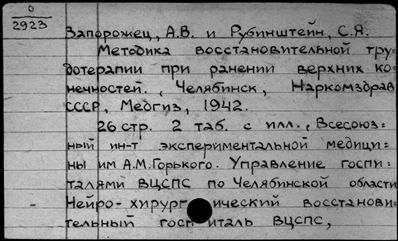 0
2923
Запорожец, А.В. и Рубинштейн, С.Я.
Методика восстановительной тру=
дотерапии при ранении верхних ко=
нечностей., Челябинск, Наркомздрав
СССР, Медгиз, 1942.
26 стр. 2 таб. с илл., Всесоюз=
ный ин-т экспериментальной медици=
ны им А.М.Горького. Управление госпи=
талями ВЦСПС по Челябинской области
Нейро-хирургический восстанови=
тельный госпиталь ВЦСПС,